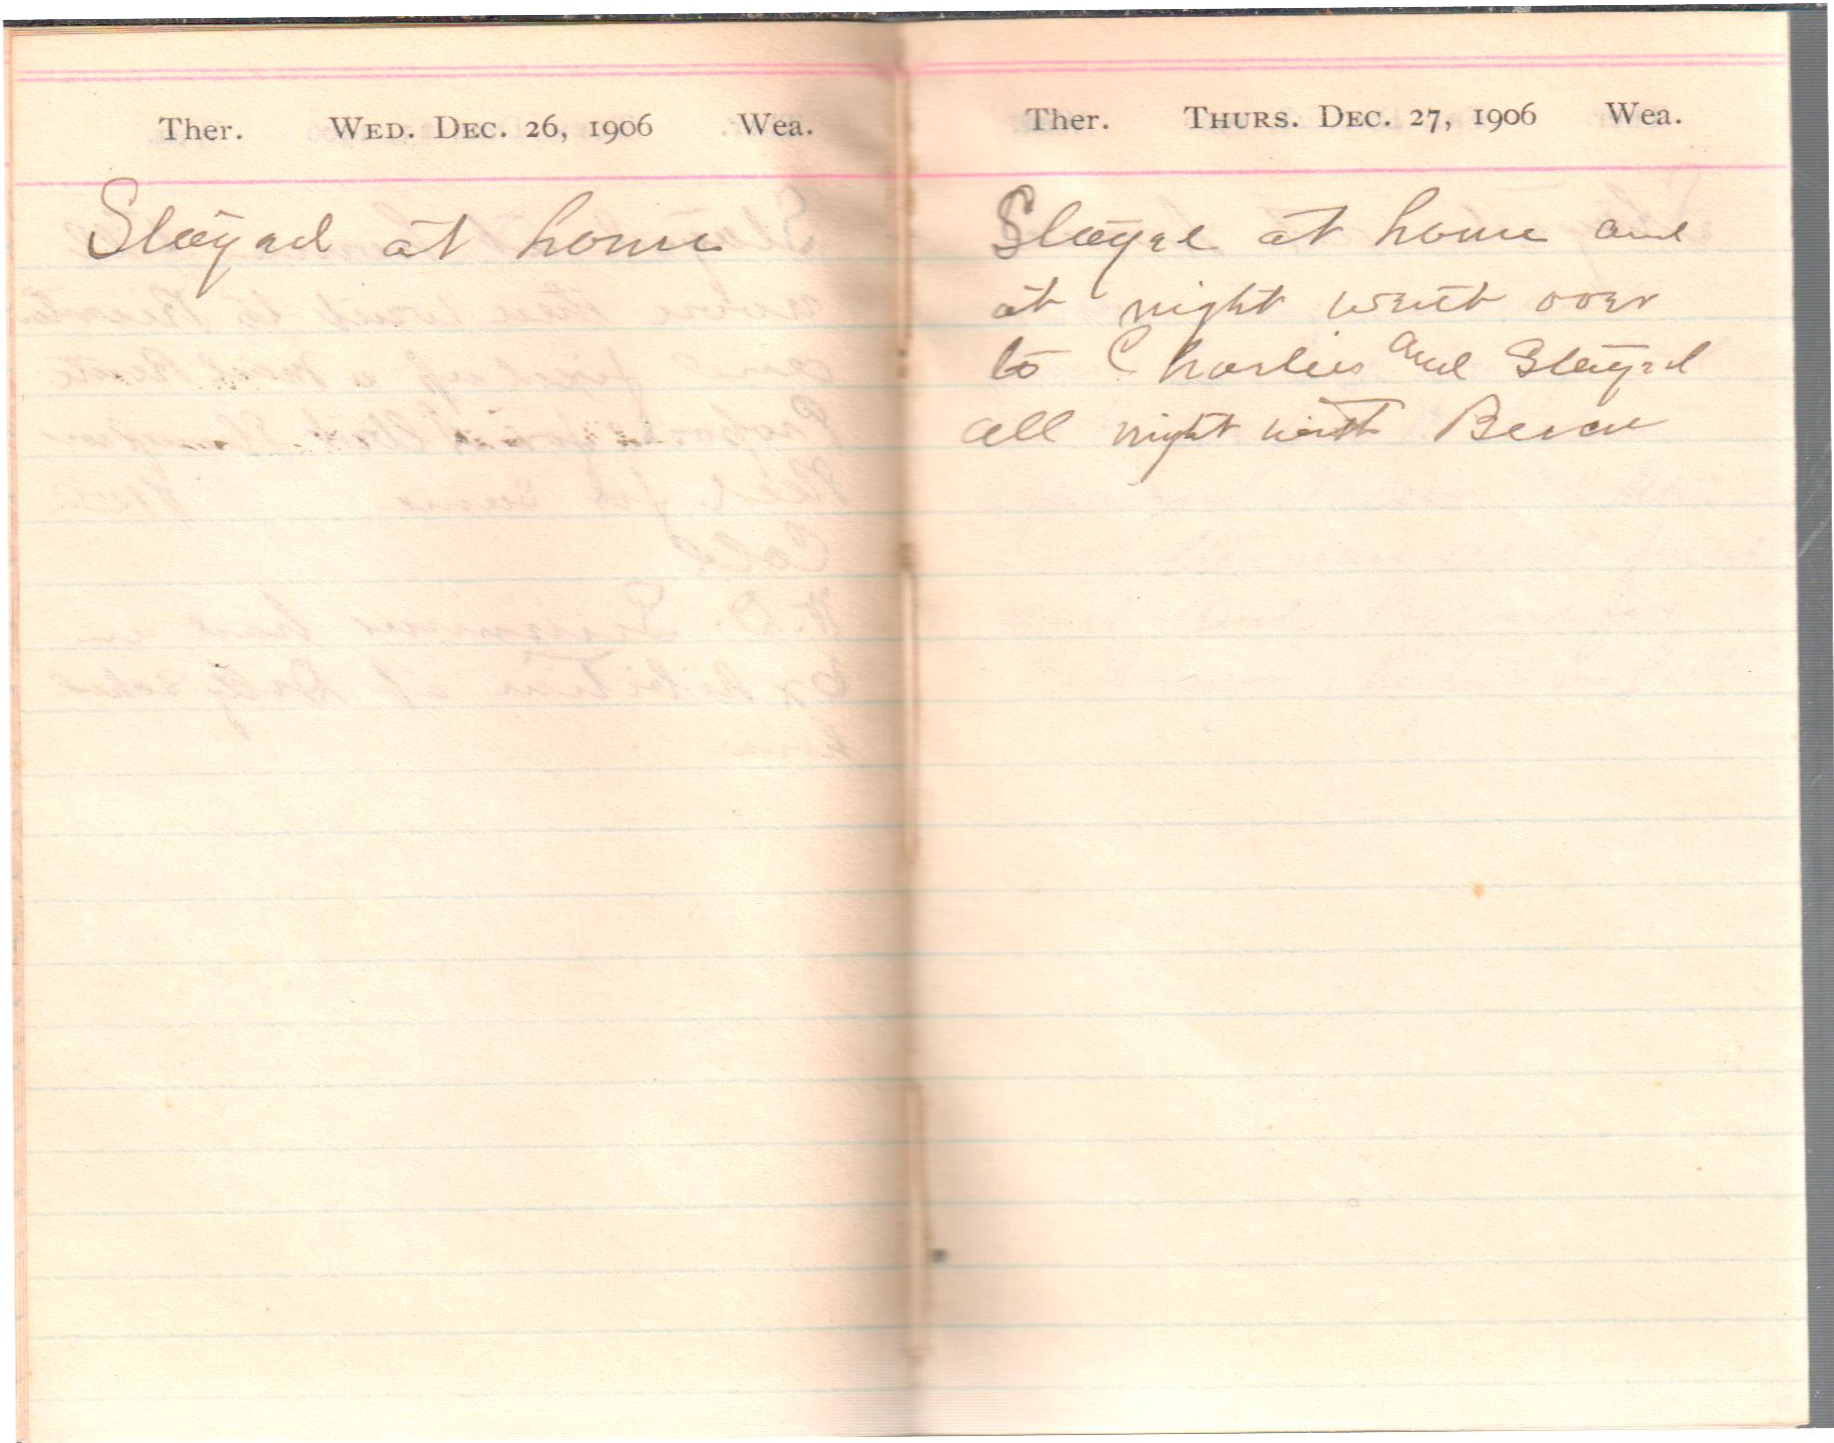 Ther. Wed. Dec. 26, 1906 Wea.
Stayed at home
Ther. Thurs. Dec. 27, 1906 Wea.
Stayed at home and
at night went over
to Charlies and Stayed
all night with